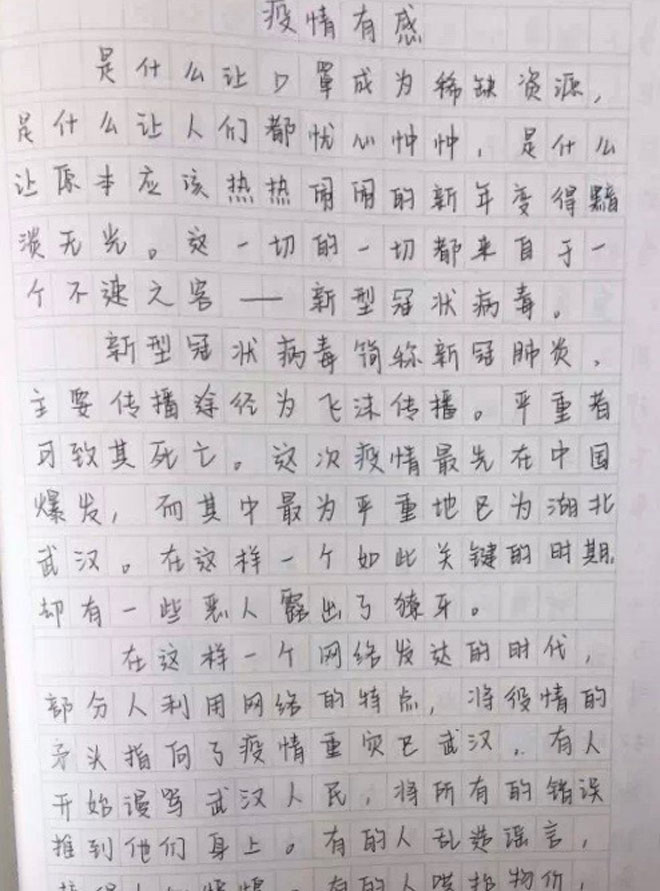 疫情有感
是什么让口罩成为稀缺资源，
是什么让人们都忧心忡忡，是什么
让原本应该热热闹闹的新年变得黯
淡无光。这一切的一切都来自于一
个不速之客——新型冠状病毒。
新型冠状病毒简称新冠肺炎，
主要传播途径为飞沫传播。严重者
可致其死亡。这次疫情最先在中国
爆发，而其中最为严重地区为湖北
武汉。在这样一个如此关键的时期，
却有一些恶人露出了獠牙。
在这样一个网络发达的时代，
部分人利用网络的特点，将役情的
矛头指向了疫情重灾区武汉，有人
开始谩骂武汉人民，将所有的错误
推到他们身上。有的人乱造谣言，
有的人哄抬物价，